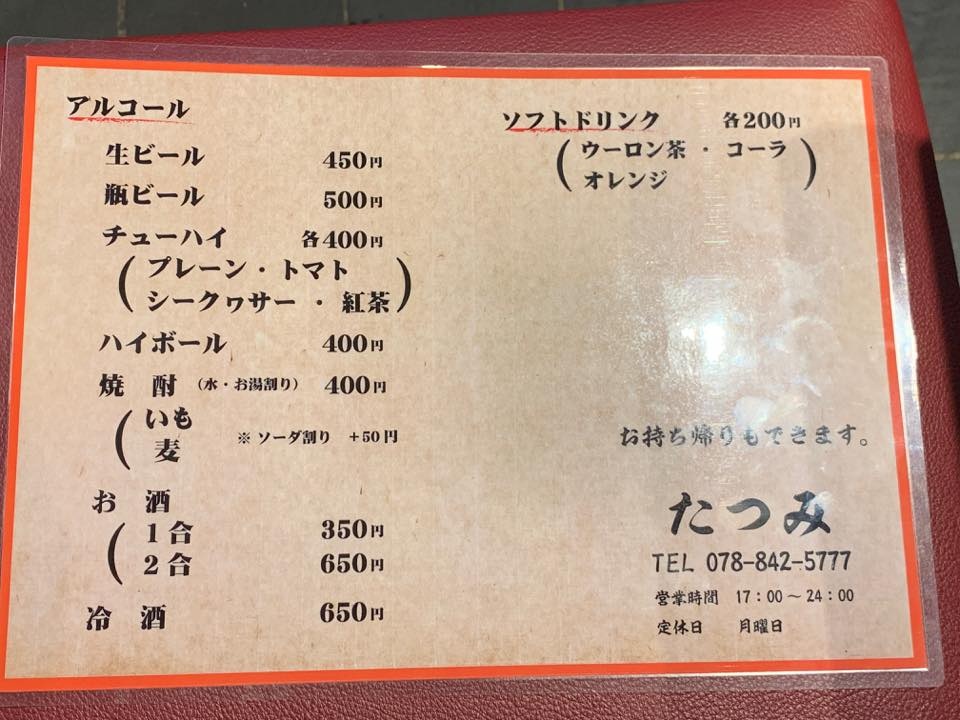 アルコール
生ビール 450円
瓶ビール 500円
チューハイ 各400円
(プレーン・トマト
シークヮサー・紅茶)
ハイボール 400円
焼酎 (水・お湯割り) 400円
(いも
麦
※ ソーダ割り +50円
お酒
(1合 350円
2合 650円
冷酒 650円
ソフトドリンク 各200円
(ウーロン茶・コーラ
オレンジ)
お持ち帰りもできます。
たつみ
TEL 078-842-5777
営業時間 17:00~24:00
定休日 月曜日